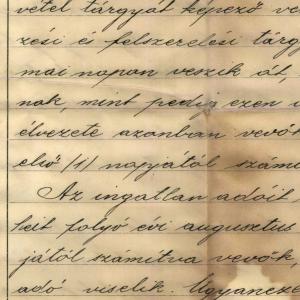 vétel tárgyát képező ve
zési és felszerelési tárg
mai napon veszik át,
nak, mint pedig ezen i
élvezete azonban vevők
első /1/ napjától számi
Az ingatlan adóit
heit folyó évi augusztus
jától számítva vevők,
adó viselik. Ugyaneze